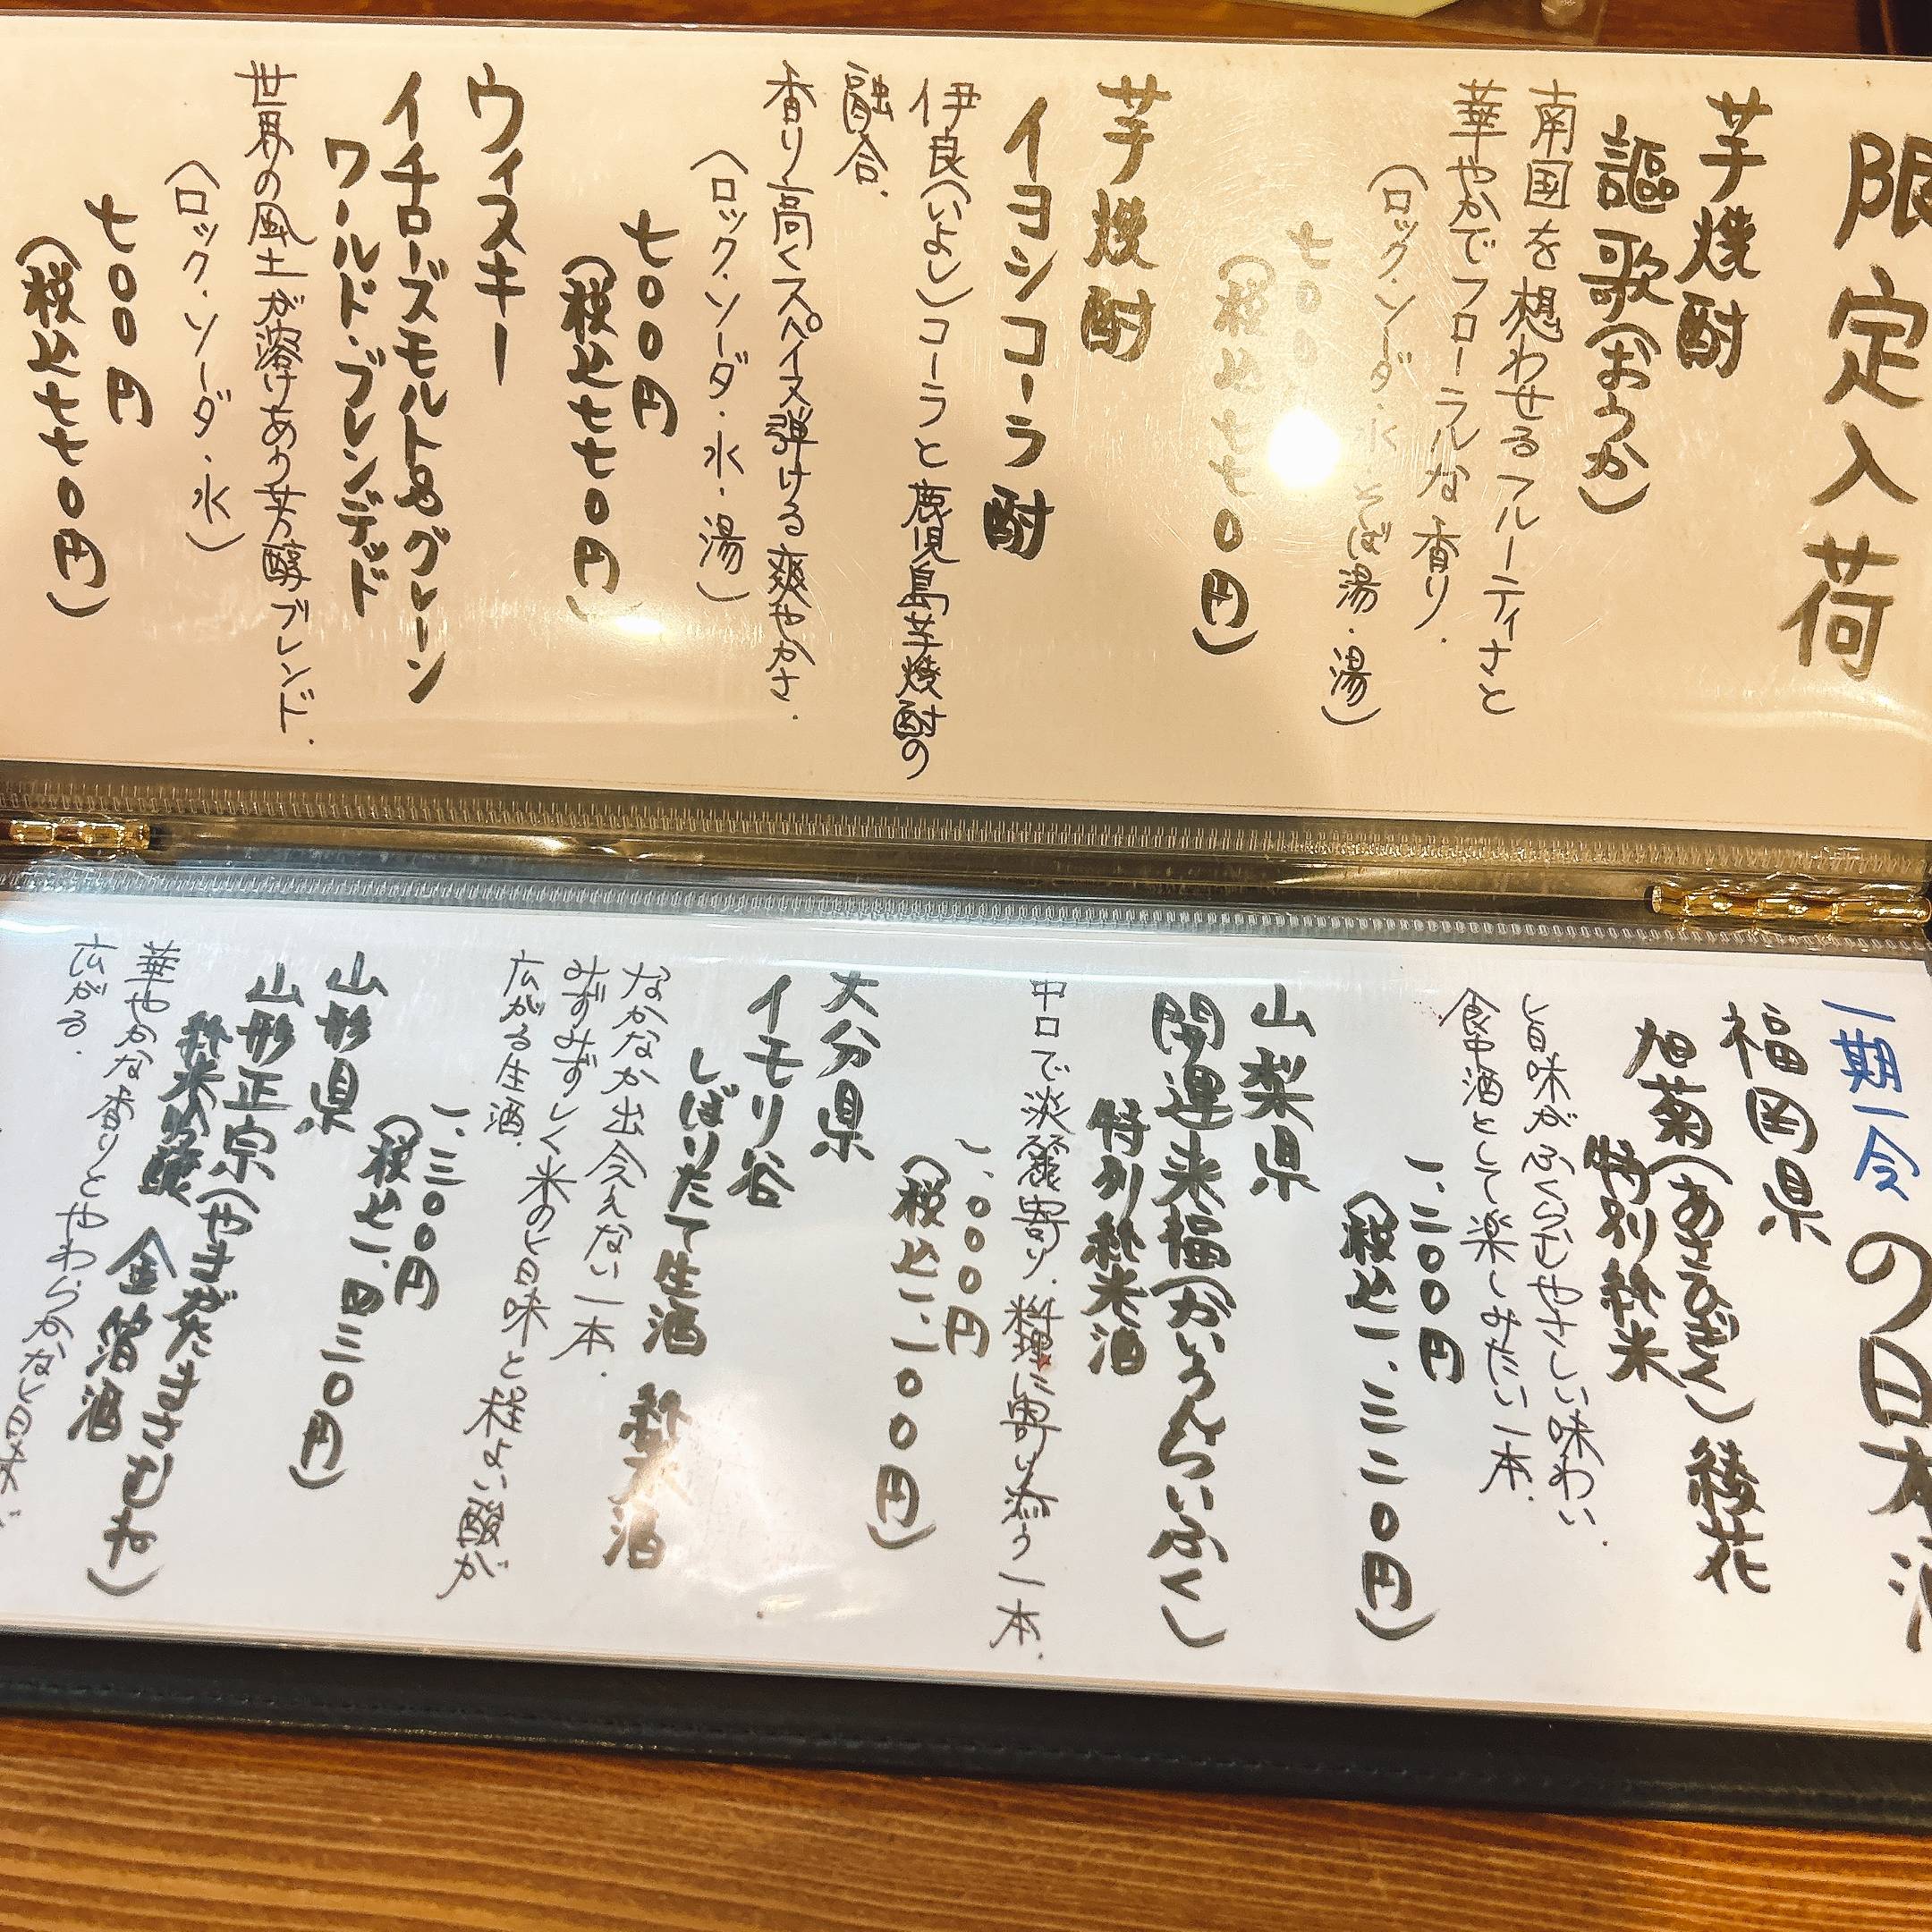 限定入荷
芋焼酎
謳歌(おうか)
南国を想わせるフルーティさと
華やかでフローラルな香り.
(ロック・ソーダ・水・そば湯・湯)
七〇〇円
(税込七七〇円)
芋焼酎
イヨシコーラ酎
伊良(いよし)コーラと鹿児島芋焼酎の
融合.
香り高くスパイス弾ける爽やかさ.
(ロック・ソーダ・水・湯)
七〇〇円
(税込七七〇円)
ウィスキー
イチローズモルト&グレーン
ワールド・ブレンデッド
世界の風土が溶けあう芳醇ブレンド.
(ロック・ソーダ・水)
七〇〇円
(税込七七〇円)
一期一会の日本酒
福岡県
旭菊(あさひぎく)綾花
特別純米
旨味がふくらむやさしい味わい.
食中酒として楽しみたい一本.
一、二〇〇円
(税込一、三二〇円)
山梨県
開運来福(かいうんらいふく)
特別純米酒
中口で淡麗寄り.料理に寄り添う一本.
一、〇〇〇円
(税込一、一〇〇円)
大分県
イモリ谷
しぼりたて生酒 純米酒
なかなか出会えない一本.
みずみずしく米の旨味と程よい酸が
広がる生酒.
一、三〇〇円
(税込一、四三〇円)
山形県
山形正宗(やまがたまさむね)
純米吟醸 金箔酒
華やかな香りとやわらかな旨味が
広がる.